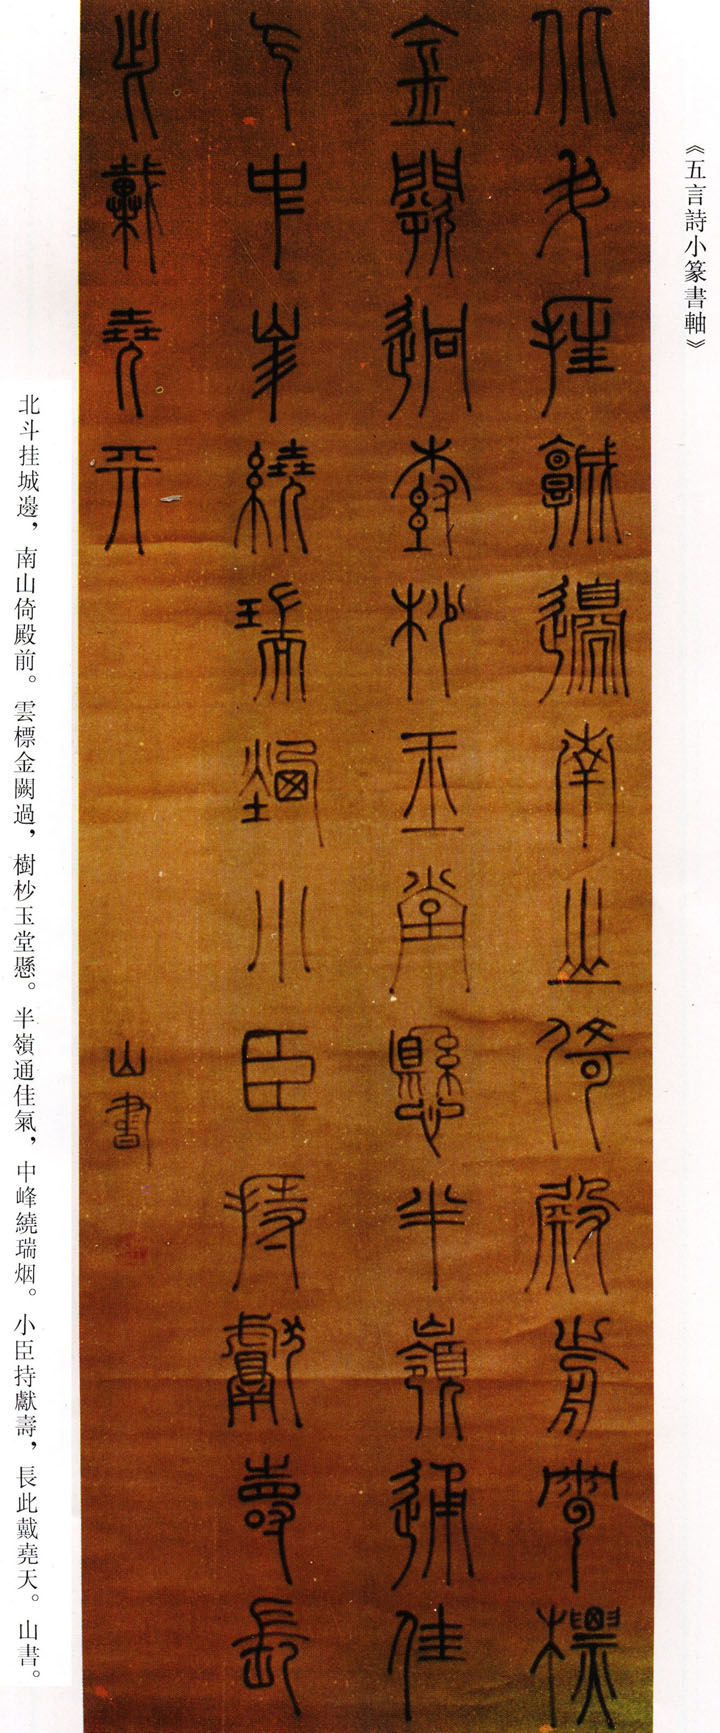 《五言詩小篆書軸》
北斗挂城邊南山倚殿前雲標
金闕迥樹杪玉堂懸半嶺通佳
气中峯繞瑞煙小臣持獻壽長
此戴堯天
山書
北斗挂城邊，南山倚殿前。雲標金闕過，樹杪玉堂懸。半嶺通佳氣，中峰繞瑞烟。小臣持獻壽，長此戴堯天。山書。